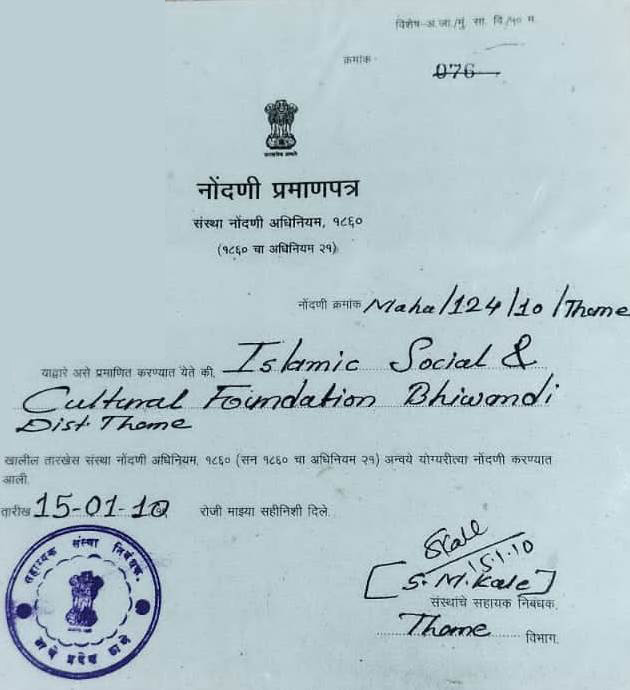 विशेष-अ.जा./मुं. सा. वि./५० म
क्रमांक
076
सत्यमेव जयते
नोंदणी प्रमाणपत्र
संस्था नोंदणी अधिनियम, १८६०
(१८६० चा अधिनियम २१)
नोंदणी क्रमांक Maha/124/10/Thane
याद्वारे असे प्रमाणित करण्यात येते की, Islamic Social &
Cultural Foundation Bhiwandi
Dist Thane
खालील तारखेस संस्था नोंदणी अधिनियम, १८६० (सन १८६० चा अधिनियम २१) अन्वये योग्यरीत्या नोंदणी करण्यात
आली.
तारीख 15-01-10 रोजी माझ्या सहीनिशी दिले.
SKale
15.1.10
[S. M. Kale]
संस्थांचे सहायक निबंधक,
Thane विभाग.
सहाय्यक संस्था निबंधक.
ठाणे